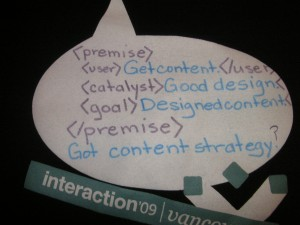 <premise>
<user>Getcontent.</user>
<catalyst>Good design<
<goal>Designedcontent<
</premise>
Got content strategy?
interaction'09 | vancou